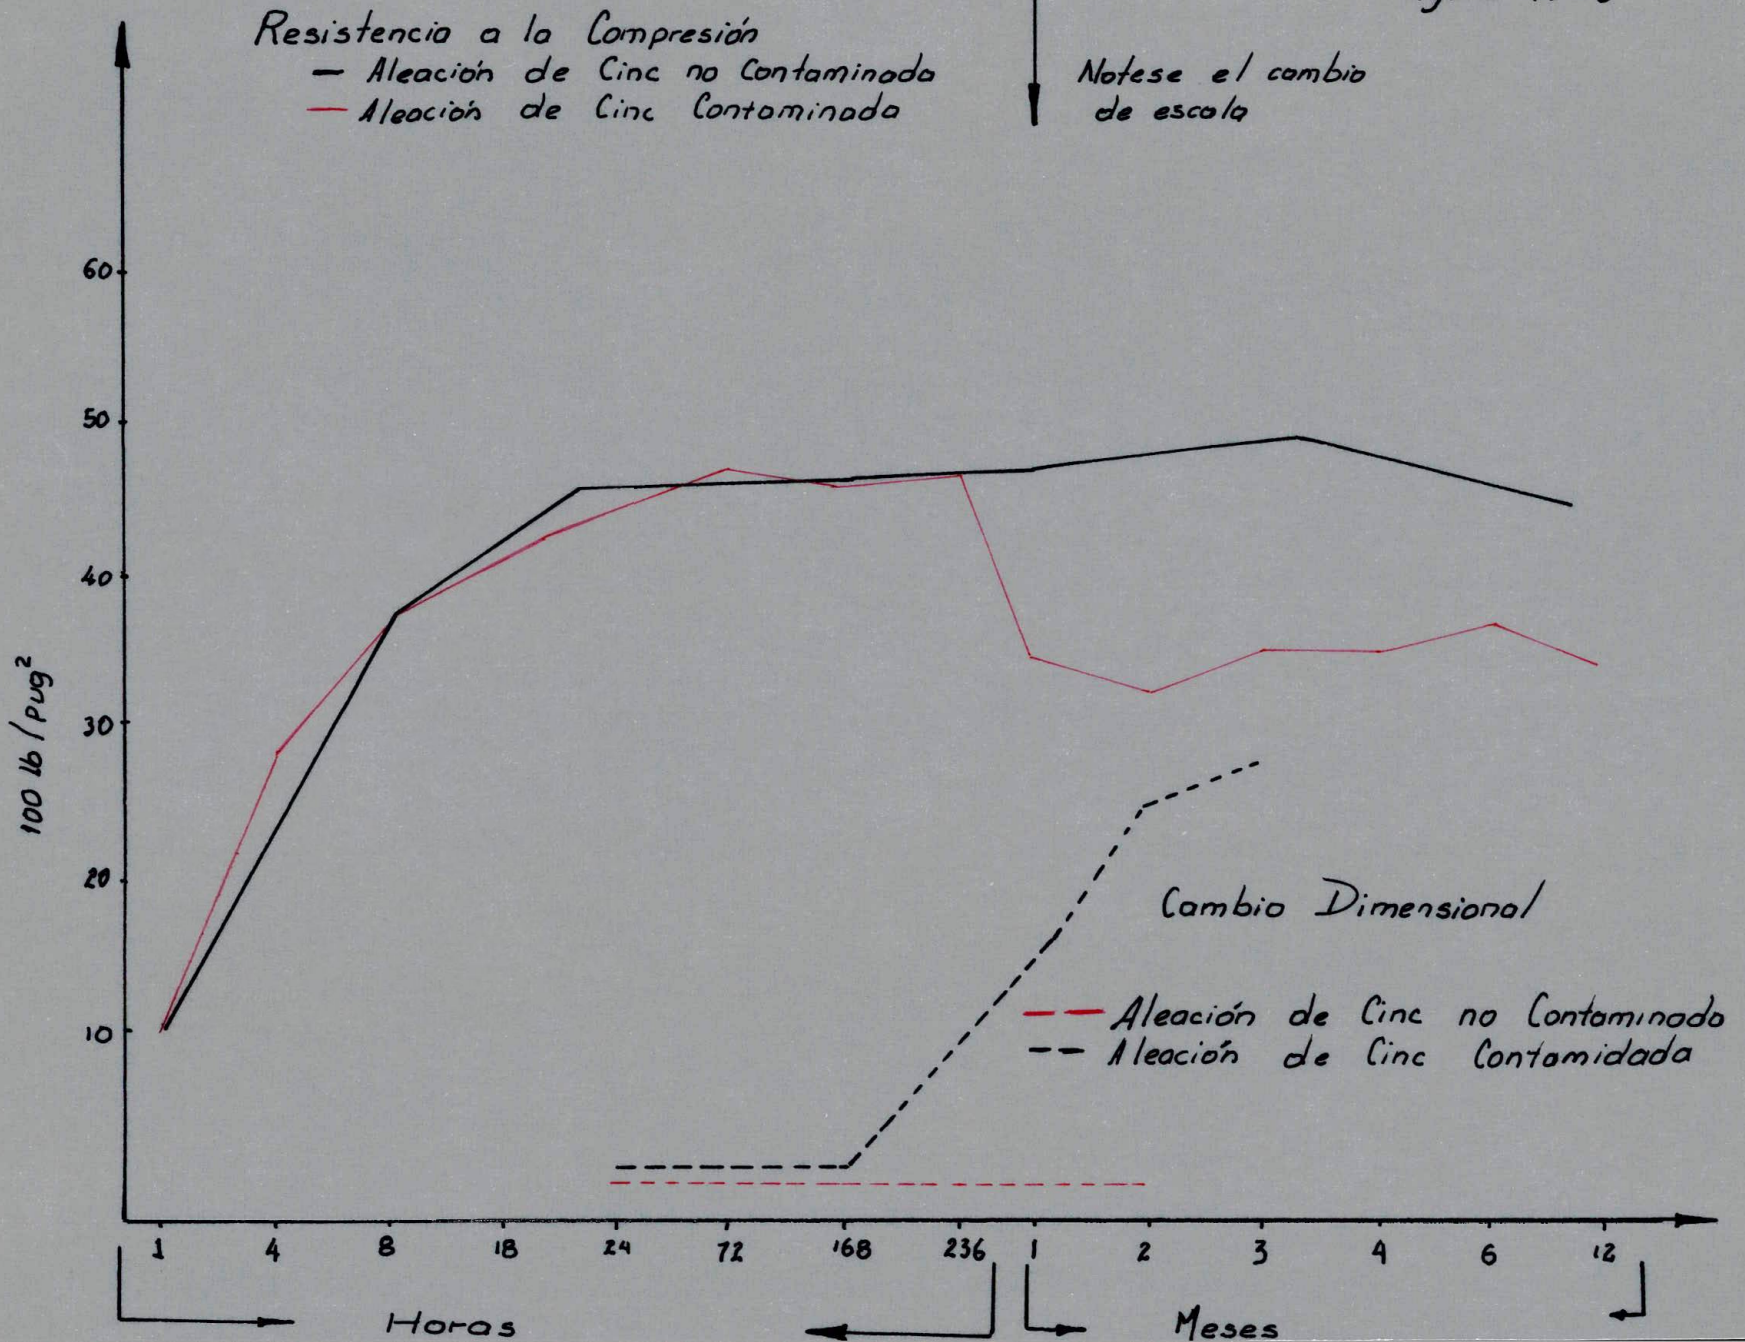 Resistencia a la Compresión
— Aleación de Cinc no Contaminada
— Aleación de Cinc Contaminada
Notese el cambio
de escala
60
50
40
30
20
10
100 lb/pug²
Cambio Dimensional
— — Aleación de Cinc no Contaminado
-- Aleación de Cinc Contamidada
1 4 8 18 24 72 168 236 1 2 3 4 6 12
Horas Meses